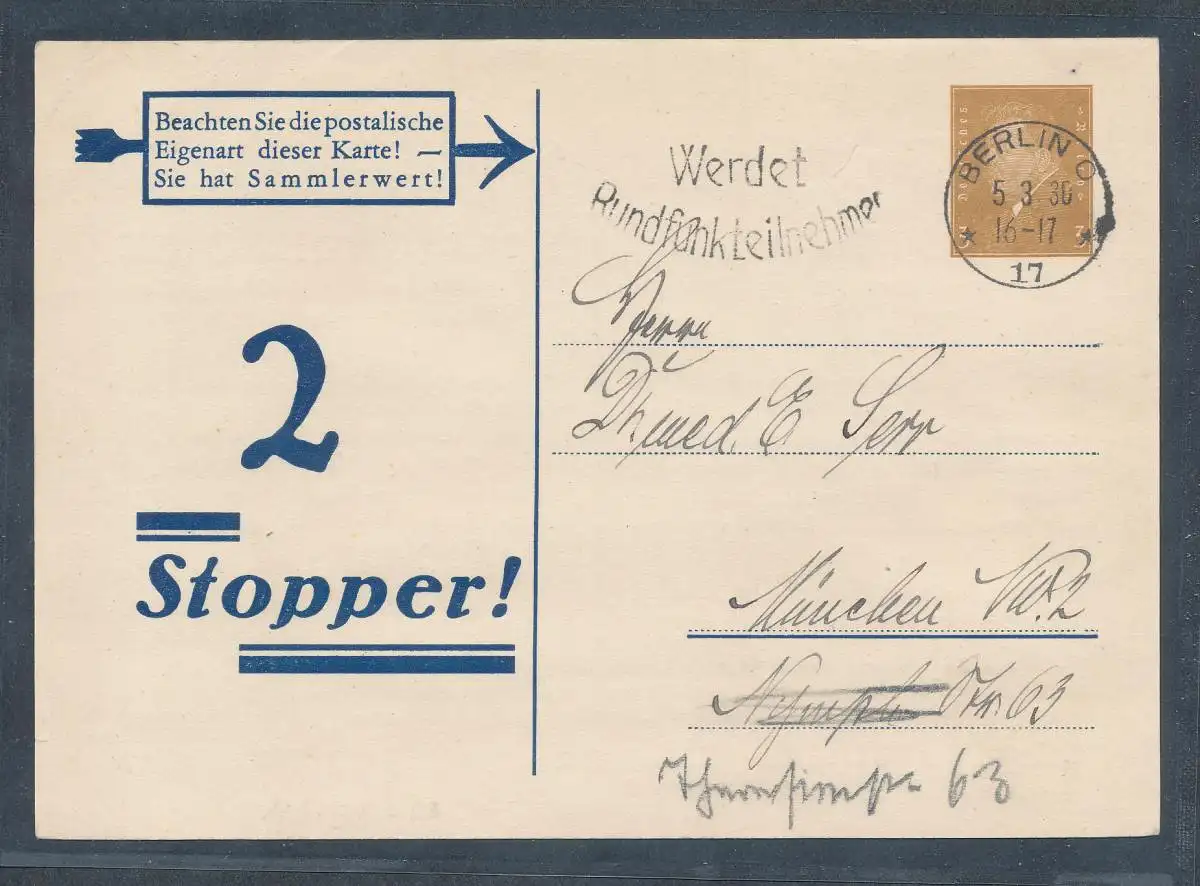 Beachten Sie die postalische
Eigenart dieser Karte! —
Sie hat Sammlerwert!
2
Stopper!
Werdet
Rundfunkteilnehmer
Deutsches Reich
3 3
BERLIN O
5.3.30
16-17
* *
17
Herrn
Dr. med. E. Serr
München NW. 2
Str. 63
63